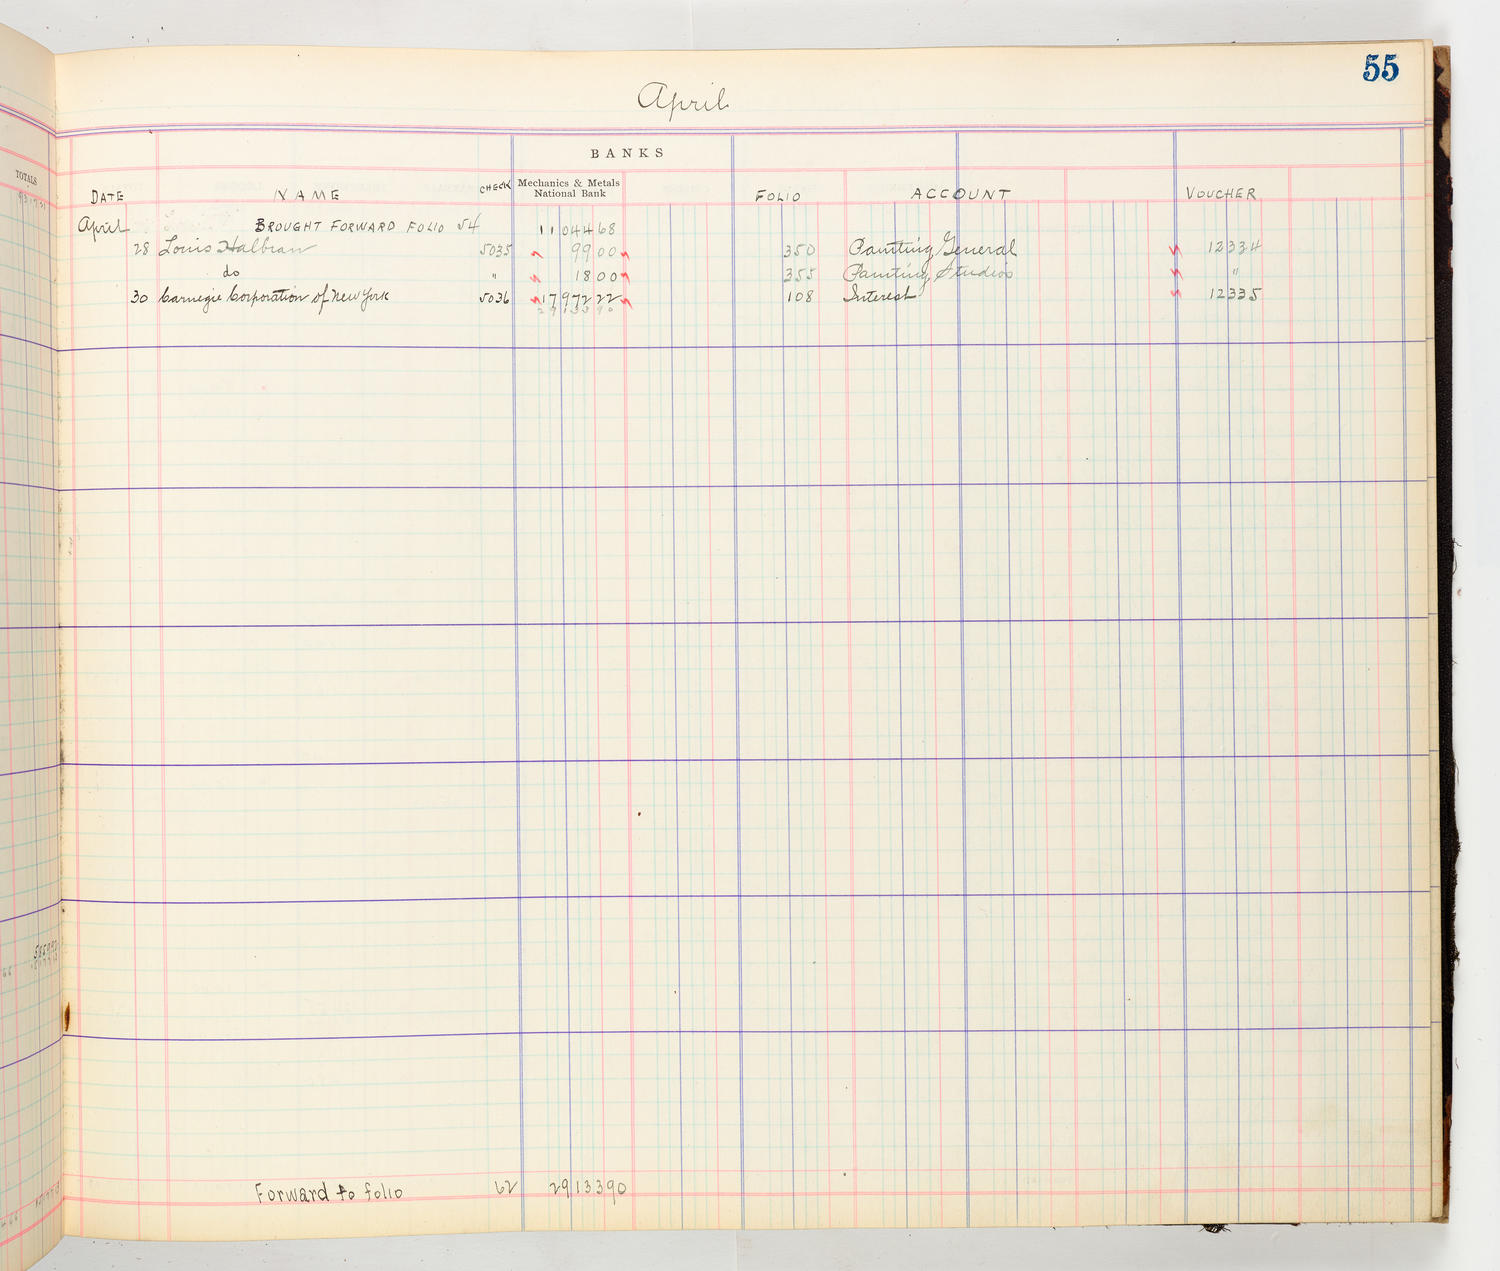 55
April
BANKS
TOTALS
DATE NAME CHECK Mechanics & Metals National Bank FOLIO ACCOUNT VOUCHER
April BROUGHT FORWARD FOLIO 54 11 044 68
28 Louis Halbran 5035 99 00 350 Painting General 12334
do " 18 00 355 Painting Studios "
30 Carnegie Corporation of New York 5036 17 972 22 108 Interest 12335
29 133 90
Forward to folio 62 29 133 90